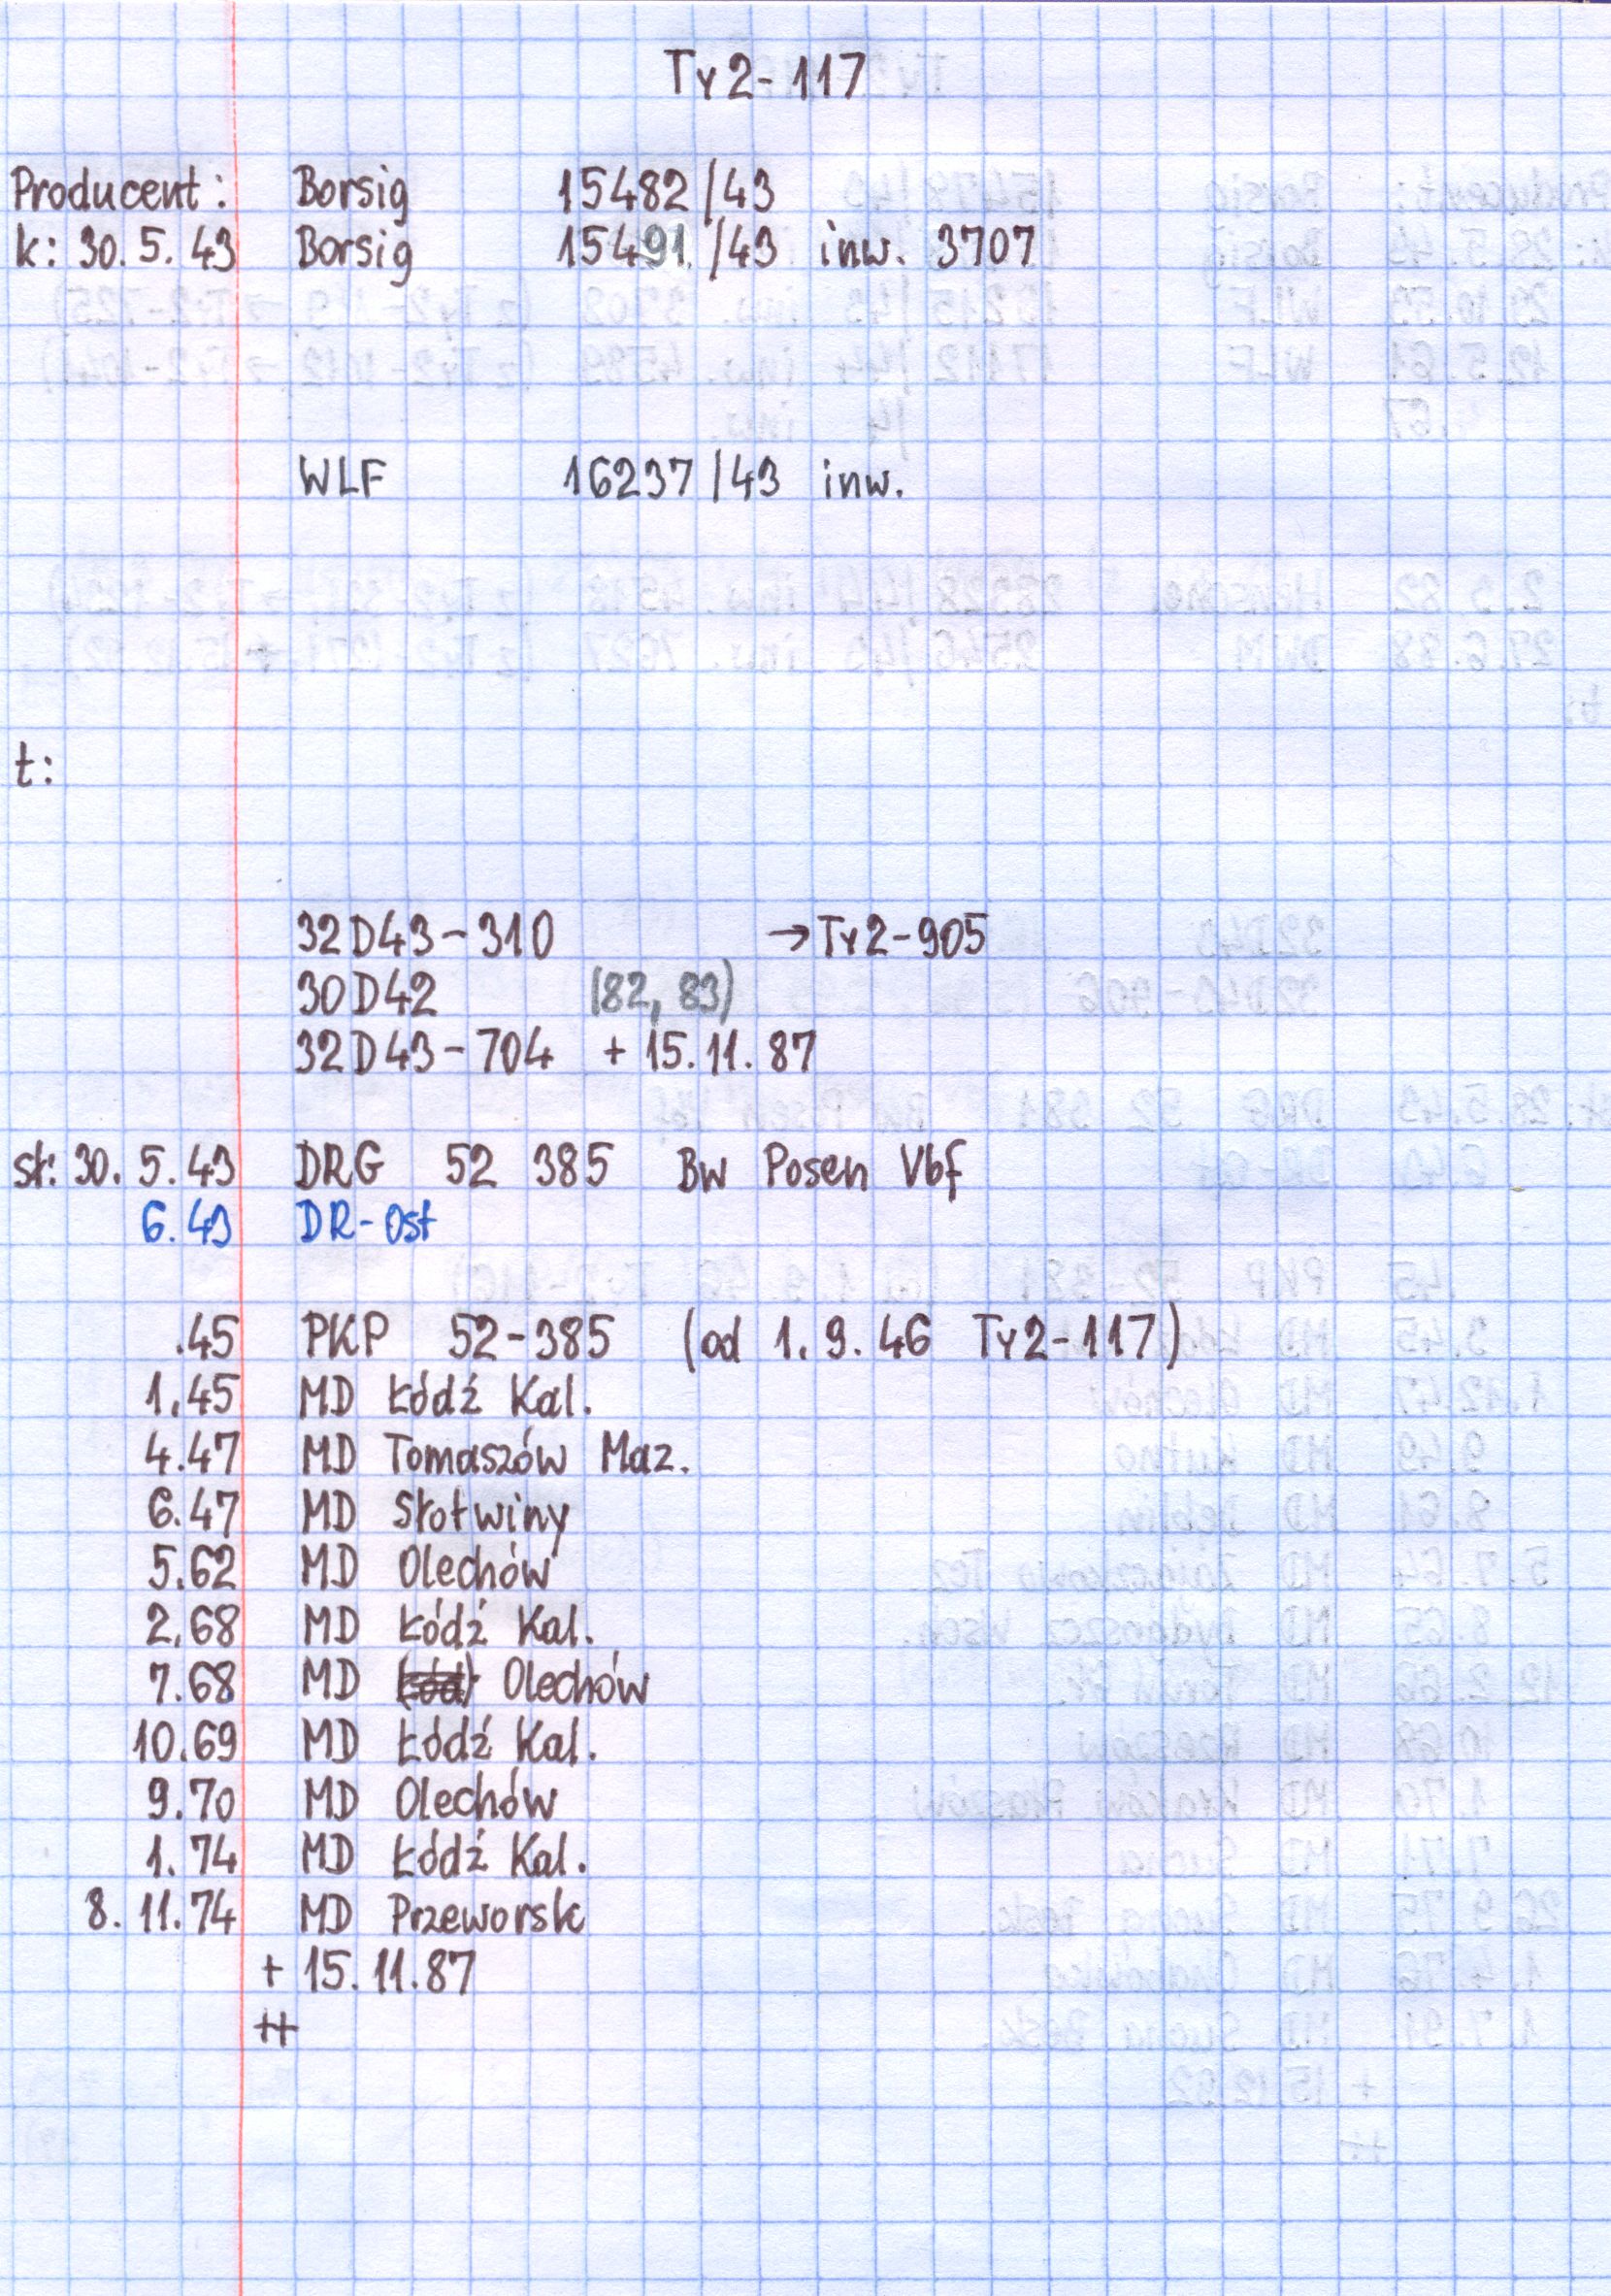 Ty2-117
Producent: Borsig 15482/43
k: 30.5.43 Borsig 15491/43 inw. 3707
WLF 16237/43 inw.
t:
32D43-310 →Ty2-905
30D42 (82, 83)
32D43-704 + 15.11.87
st: 30.5.43 DRG 52 385 Bw Posen Vbf
6.43 DR-Ost
.45 PKP 52-385 (od 1.9.46 Ty2-117)
1.45 MD Łódź Kal.
4.47 MD Tomaszów Maz.
6.47 MD Słotwiny
5.62 MD Olechów
2.68 MD Łódź Kal.
7.68 MD Olechów
10.69 MD Łódź Kal.
9.70 MD Olechów
1.74 MD Łódź Kal.
8.11.74 MD Przeworsk
+ 15.11.87
++